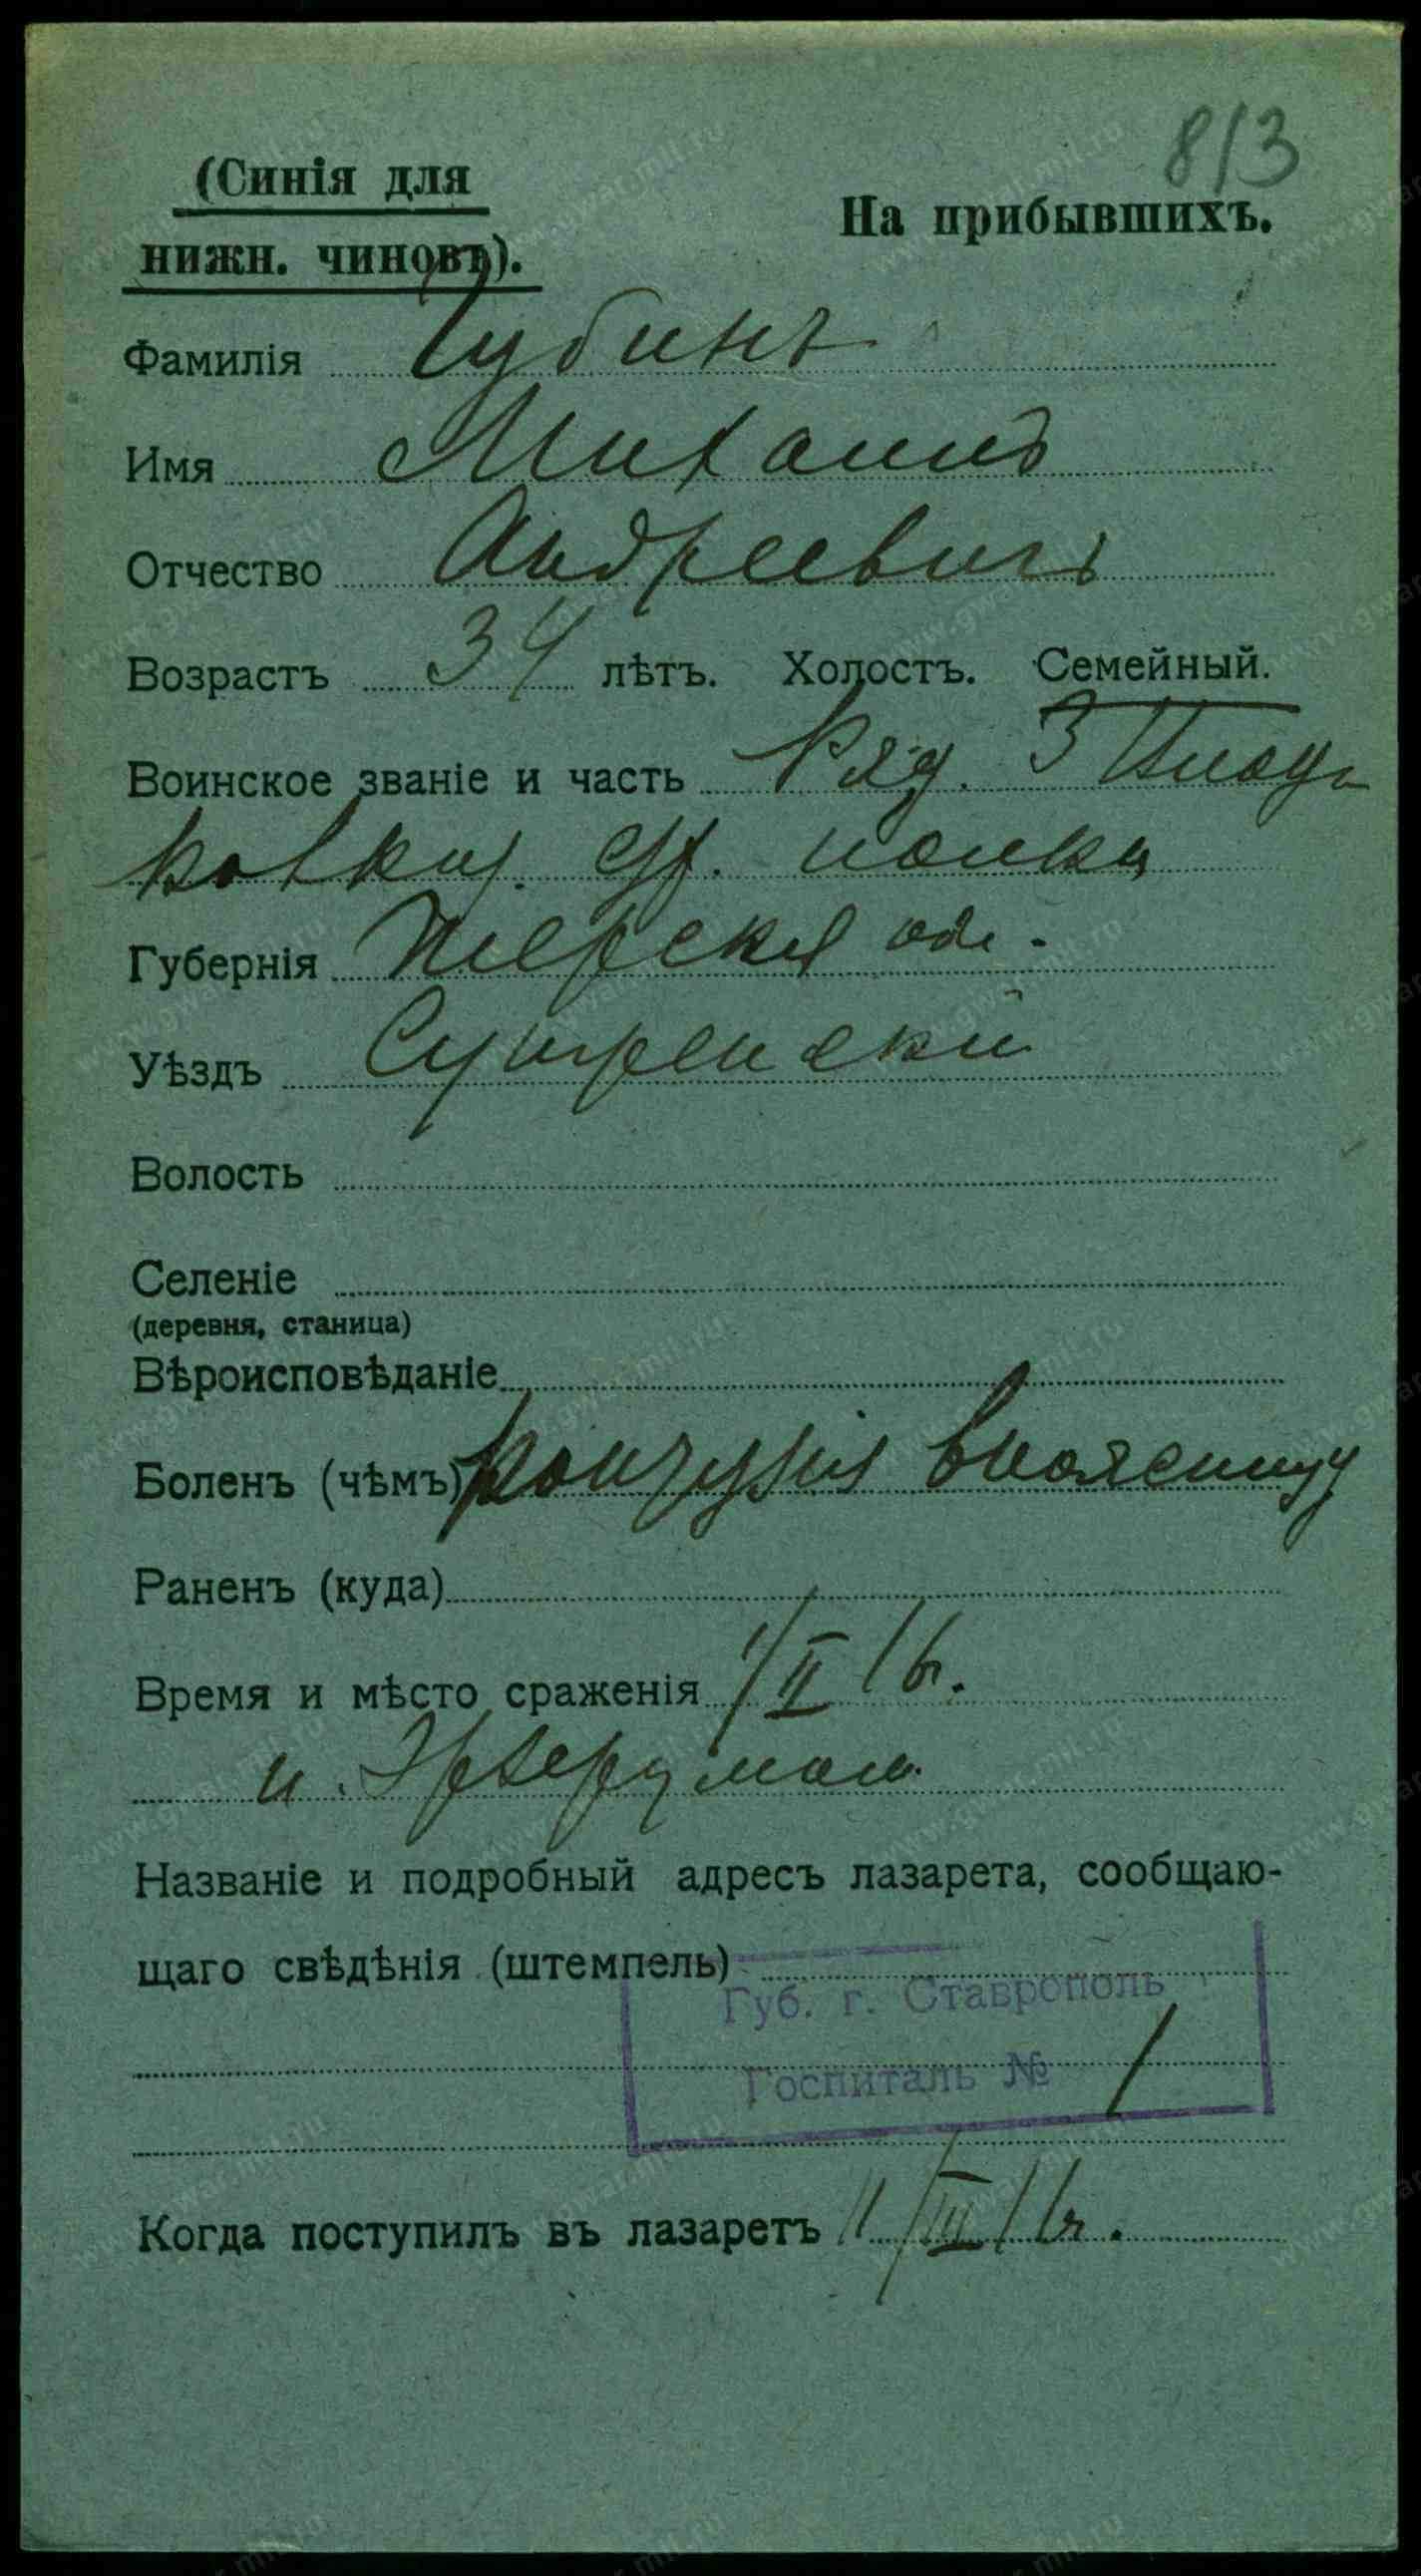 813
(Синія для
нижн. чиновъ).
На прибывшихъ.
Фамилія Губинъ
Имя Михаилъ
Отчество Андреевичъ
Возрастъ 34 лѣтъ. Холостъ. Семейный.
Воинское званіе и часть Ряд. 3
кавказ. стр. полка
Губернія Терская обл.
Уѣздъ Сунженскій
Волость
Селеніе
(деревня, станица)
Вѣроисповѣданіе
Боленъ (чѣмъ) контузія въ поясницу
Раненъ (куда)
Время и мѣсто сраженія 1/II 16 г.
п. Эрзерумом
Названіе и подробный адресъ лазарета, сообщаю-
щаго свѣдѣнія (штемпель)
Губ. г. Ставрополь
Госпиталь № 1
Когда поступилъ въ лазаретъ 11/III 16 г.